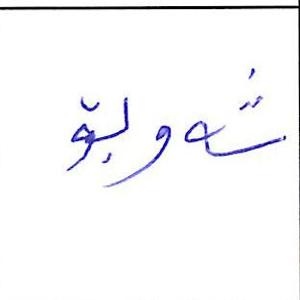 شەو بۆ